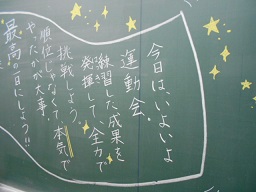 今日は、いよいよ
運動会。
練習した成果を
発揮して、全力で
挑戦しよう。
順位じゃなくて、本気で
やったかが大事。
最高の1日にしよう!!